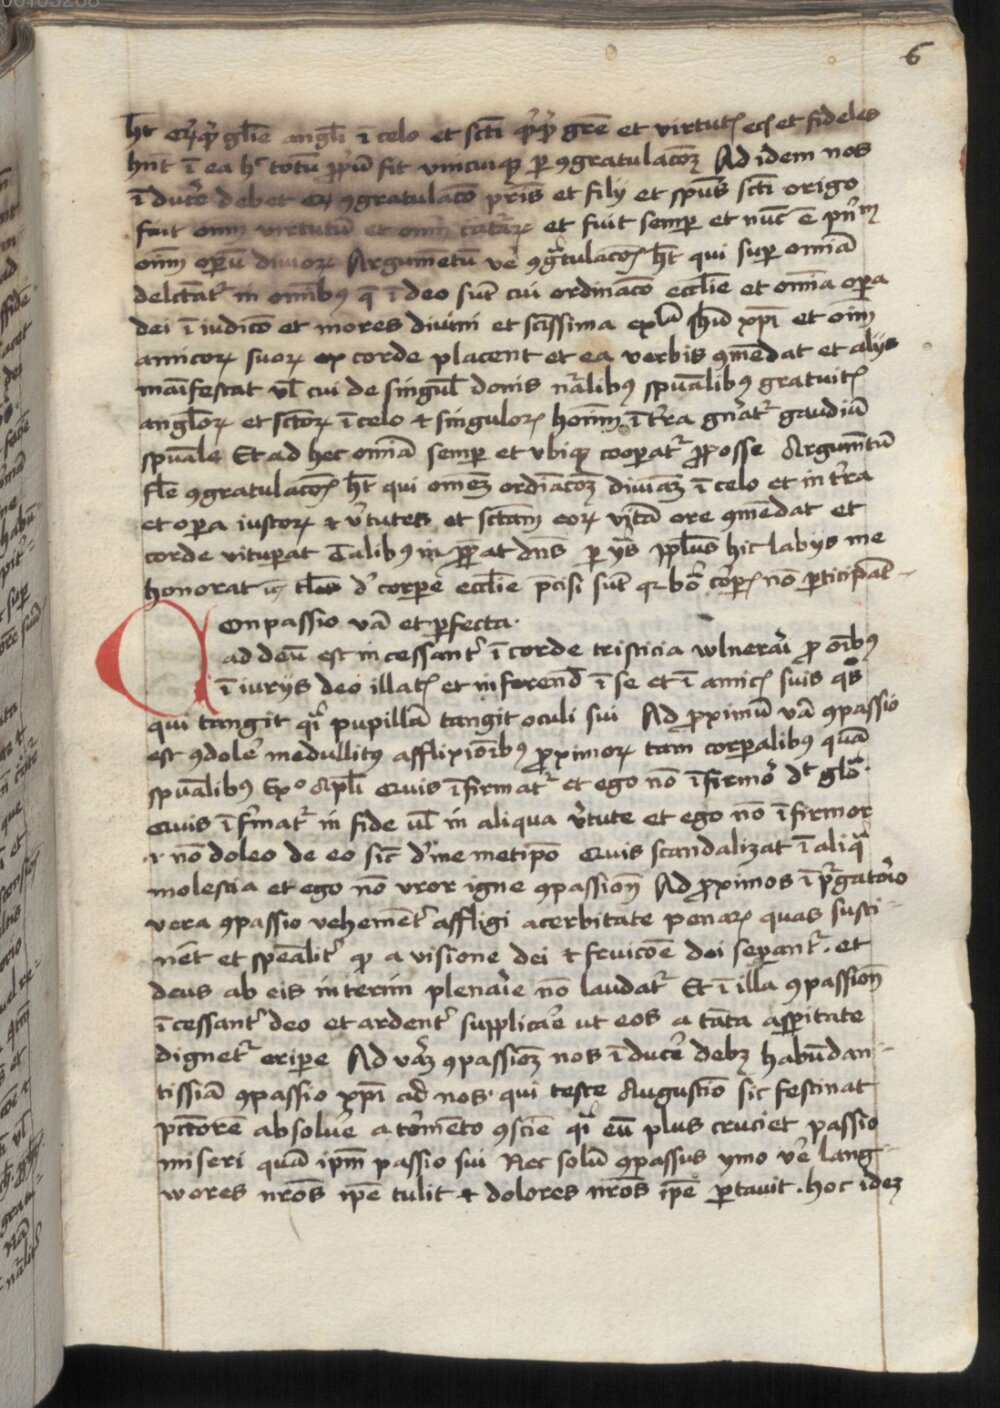 6
hr̄ gl̄ie angl̄i ī celo et sc̄ti gr̄e et virtut et fideles
hn̄t ī ea totū fit vnicuiqꝫ ꝑ ꝯgratulacōꝫ Ad idem nos
īducꝰe debet ꝯgratulacō pr̄is et filij et spūs sc̄ti origo
fuit om̄ virtutū et et fuit semꝑ et nūc ē
om̄ oꝑū diuioꝝ Argumētū ꝯgᵃtulacōꝫ hꝫt qui suꝑ omīa
delctatᷣ in omībꝰ q̄ ī deo sūt cui ordinacō eccl̄ie et omīa oꝑa
dei ī iudico et mores diuini et sc̄issima xp̄i et oīm
amicoꝝ suoꝝ ex corde placent et ea verbis ꝯmēdat et alijs
maīfestat vl̄ cui de singul̄ donis nᵃlibꝰ spūalibꝰ gratuitꝭ
angl̄oꝝ et sc̄toꝝ ī celo ⁊ singuloꝝ hoīm ī tr̄ra gn̄atᷣ gaudiū
spūale Et ad hec omīa semꝑ et vbiqꝫ cooꝑatᷣ ꝓ posse Argumētū
fl̄e ꝯgratulacōꝫ hꝫt qui omēꝫ ordīacōꝫ diuiaꝫ ī celo et in tr̄ra
et oꝑa iustoꝝ ⁊ v̓tutes et sc̄tam eoꝝ vitā ore ꝯmēdat et
corde vituꝑat Talibꝰ dn̄s ꝑ ppl̄us hic labijs me
honorat d̓ corꝑe eccl̄ie p̄cisi sūt nō ꝑticipāt
Conpassio vā et ꝑfecta
ad deū est incessantᷣ ī corde tristicia wlnerari ꝓ oībꝰ
ī iurijs deo illatꝭ et inferend̄ ī se et ī amicꝭ suis qꝫ
qui tangit qᵃi pupillā tangit oculi sui Ad ꝓximū vā ꝯpassio
est ꝯdoleꝰ medullitꝰ afflixioībꝰ ꝓximoꝝ tam corꝑalibꝰ quā
spūalibꝰ Exᵒ apl̄i Quis īfirmatᷣ et ego nō īfirmoᷣ dꝫt glō
Quis īf̓matᷣ in fide vl̄ in aliqua v̓tute et ego nō īfirmor
⁊ nō doleo de eo sic̄ d̓ me metipō Quis scandalizat ī aliqᵃ
molestia et ego nō vror igne ꝯpassion̄ Ad ꝓximos ī pᷣgatorio
vera ꝯpassio vehementᷣ affligi acerbitate penaꝝ quas susti
nēt et speālitᷣ qꝫ a visione dei ⁊ fruicōe dei seꝑantᷣ. et
deus ab eis interim plenarie nō laudatᷣ Et ī illa ꝯpassion̄
īcessantᷣ deo et ardentᷣ supplicaꝰe ut eos a tāta asꝑitate
dignetᷣ eriꝑe Ad vāꝫ ꝯpassioꝫ nos īducꝰe debꝫ habūdan
tissīa ꝯpassio xp̄i ad nos. qui teste Augustīo sic festinat
pc̄torē absoluꝰe a tormēto ꝯscīe qᵃi eū plus cruciet passio
miseri quā ip̄m passio sui Nec solū ꝯpassus ymo vꝰe lang
wores nr̄os ip̄e tulit ⁊ dolores nr̄os ip̄e ꝑtauit. hoc ideꝫ